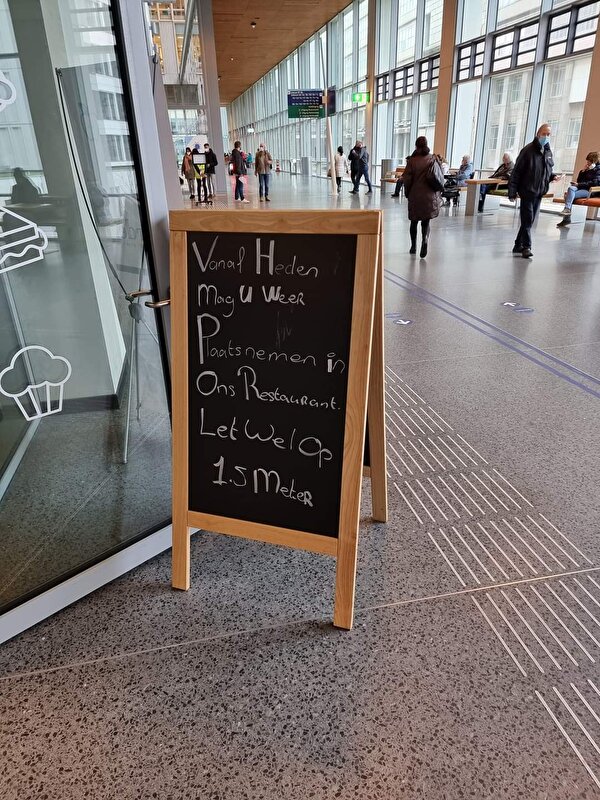 Vanaf Heden
Mag U Weer
Plaatsnemen in
Ons Restaurant.
Let Wel Op
1.5 Meter